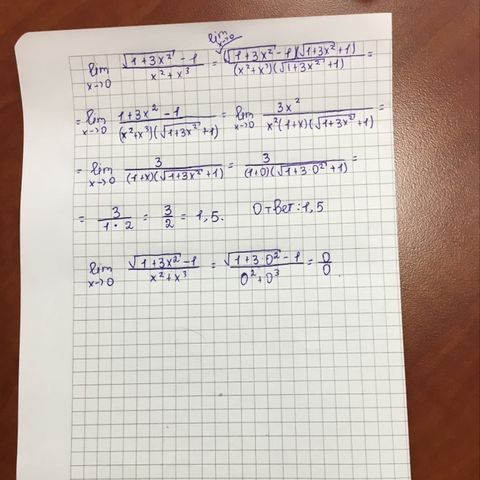 lim x→0 (√(1+3x²) − 1)/(x²+x³) = lim x→0 ((√(1+3x²) − 1)(√(1+3x²) + 1))/((x²+x³)(√(1+3x²) + 1)) =
= lim x→0 (1+3x² − 1)/((x²+x³)(√(1+3x²) + 1)) = lim x→0 3x²/(x²(1+x)(√(1+3x²) + 1)) =
= lim x→0 3/((1+x)(√(1+3x²) + 1)) = 3/((1+0)(√(1+3·0²) + 1)) =
= 3/(1·2) = 3/2 = 1,5. Ответ: 1,5
lim x→0 (√(1+3x²) − 1)/(x²+x³) = (√(1+3·0²) − 1)/(0²+0³) = 0/0.